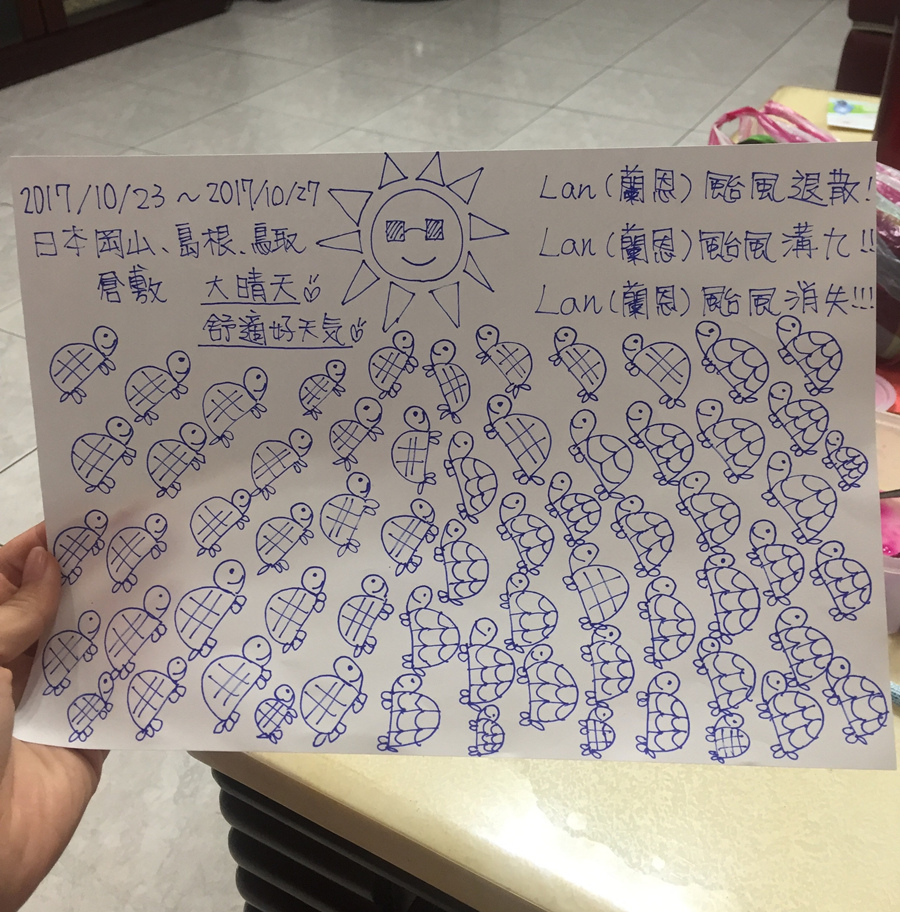 2017/10/23 ~ 2017/10/27
日本岡山、島根、鳥取
倉敷 大晴天
舒適好天気
Lan(蘭恩)颱風退散!
Lan(蘭恩)颱風溝ㄊ!!
Lan(蘭恩)颱風消失!!!